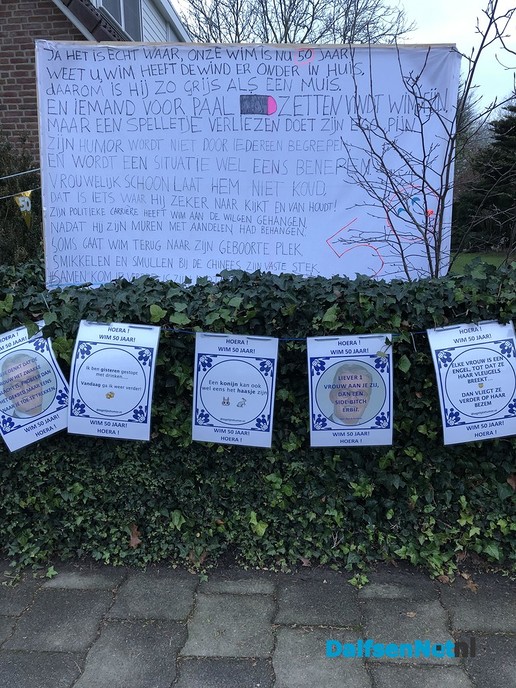 JA HET IS ECHT WAAR, ONZE WIM IS NU 50 JAAR
WEET U, WIM HEEFT DE WIND ER ONDER IN HUIS.
DAAROM IS HIJ ZO GRIJS ALS EEN MUIS.
EN IEMAND VOOR PAAL ZETTEN VINDT WIM
MAAR EEN SPELLETJE VERLIEZEN DOET ZIJN EGO PIJN
ZIJN HUMOR WORDT NIET DOOR IEDEREEN BEGREPEN
EN WORDT EEN SITUATIE WEL EENS
VROUWELIJK SCHOON LAAT HEM NIET KOUD,
DAT IS IETS WAAR HIJ ZEKER NAAR KIJKT EN VAN HOUDT!
ZIJN POLITIEKE CARRIÈRE HEEFT WIM AAN DE WILGEN GEHANGEN
NADAT HIJ ZIJN MUREN MET AANDELEN HAD BEHANGEN.
SOMS GAAT WIM TERUG NAAR ZIJN GEBOORTE PLEK
SMIKKELEN EN SMULLEN BIJ DE CHINEES ZIJN VASTE STEK
WIM 50 JAAR!
HOERA !
HOERA !
WIM 50 JAAR!
Ik ben gisteren gestopt
met drinken.
Vandaag ga ik weer verder!
WIM 50 JAAR!
HOERA !
HOERA !
WIM 50 JAAR!
Een konijn kan ook
wel eens het haasje zijn
WIM 50 JAAR!
HOERA !
HOERA !
WIM 50 JAAR!
LIEVER 1
VROUW AAN JE ZIJ,
DAN TEN
SIDE-BITCH
ERBIJ.
WIM 50 JAAR!
HOERA !
HOERA !
WIM 50 JAAR!
ELKE VROUW IS EEN
ENGEL, TOT DAT ZE
HAAR VLEUGELS
BREEKT...
DAN VLIEGT ZE
VERDER OP HAAR
BEZEM
WIM 50 JAAR!
HOERA !
DalfsenNet.nl